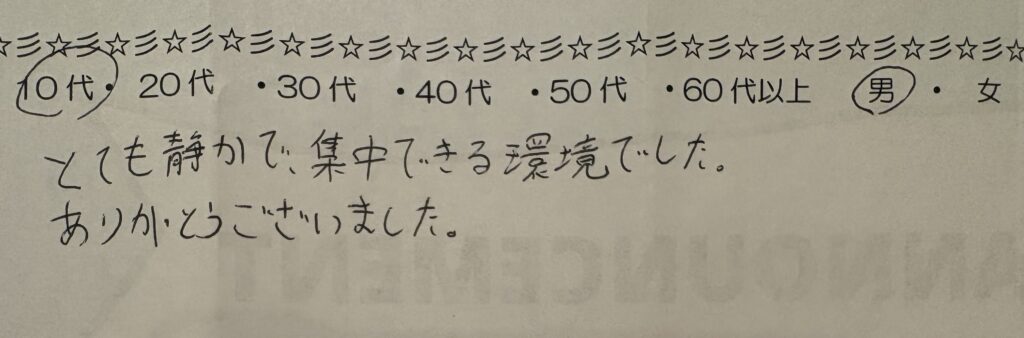 ☆彡☆彡☆彡☆彡☆彡☆彡☆彡☆彡☆彡☆彡☆彡☆彡☆彡☆彡☆彡☆彡☆彡☆
10代・ 20代 ・30代 ・40代 ・50代 ・60代以上 男 ・ 女
とても静かで、集中できる環境でした。
ありがとうございました。
ANNOUNCEMENT